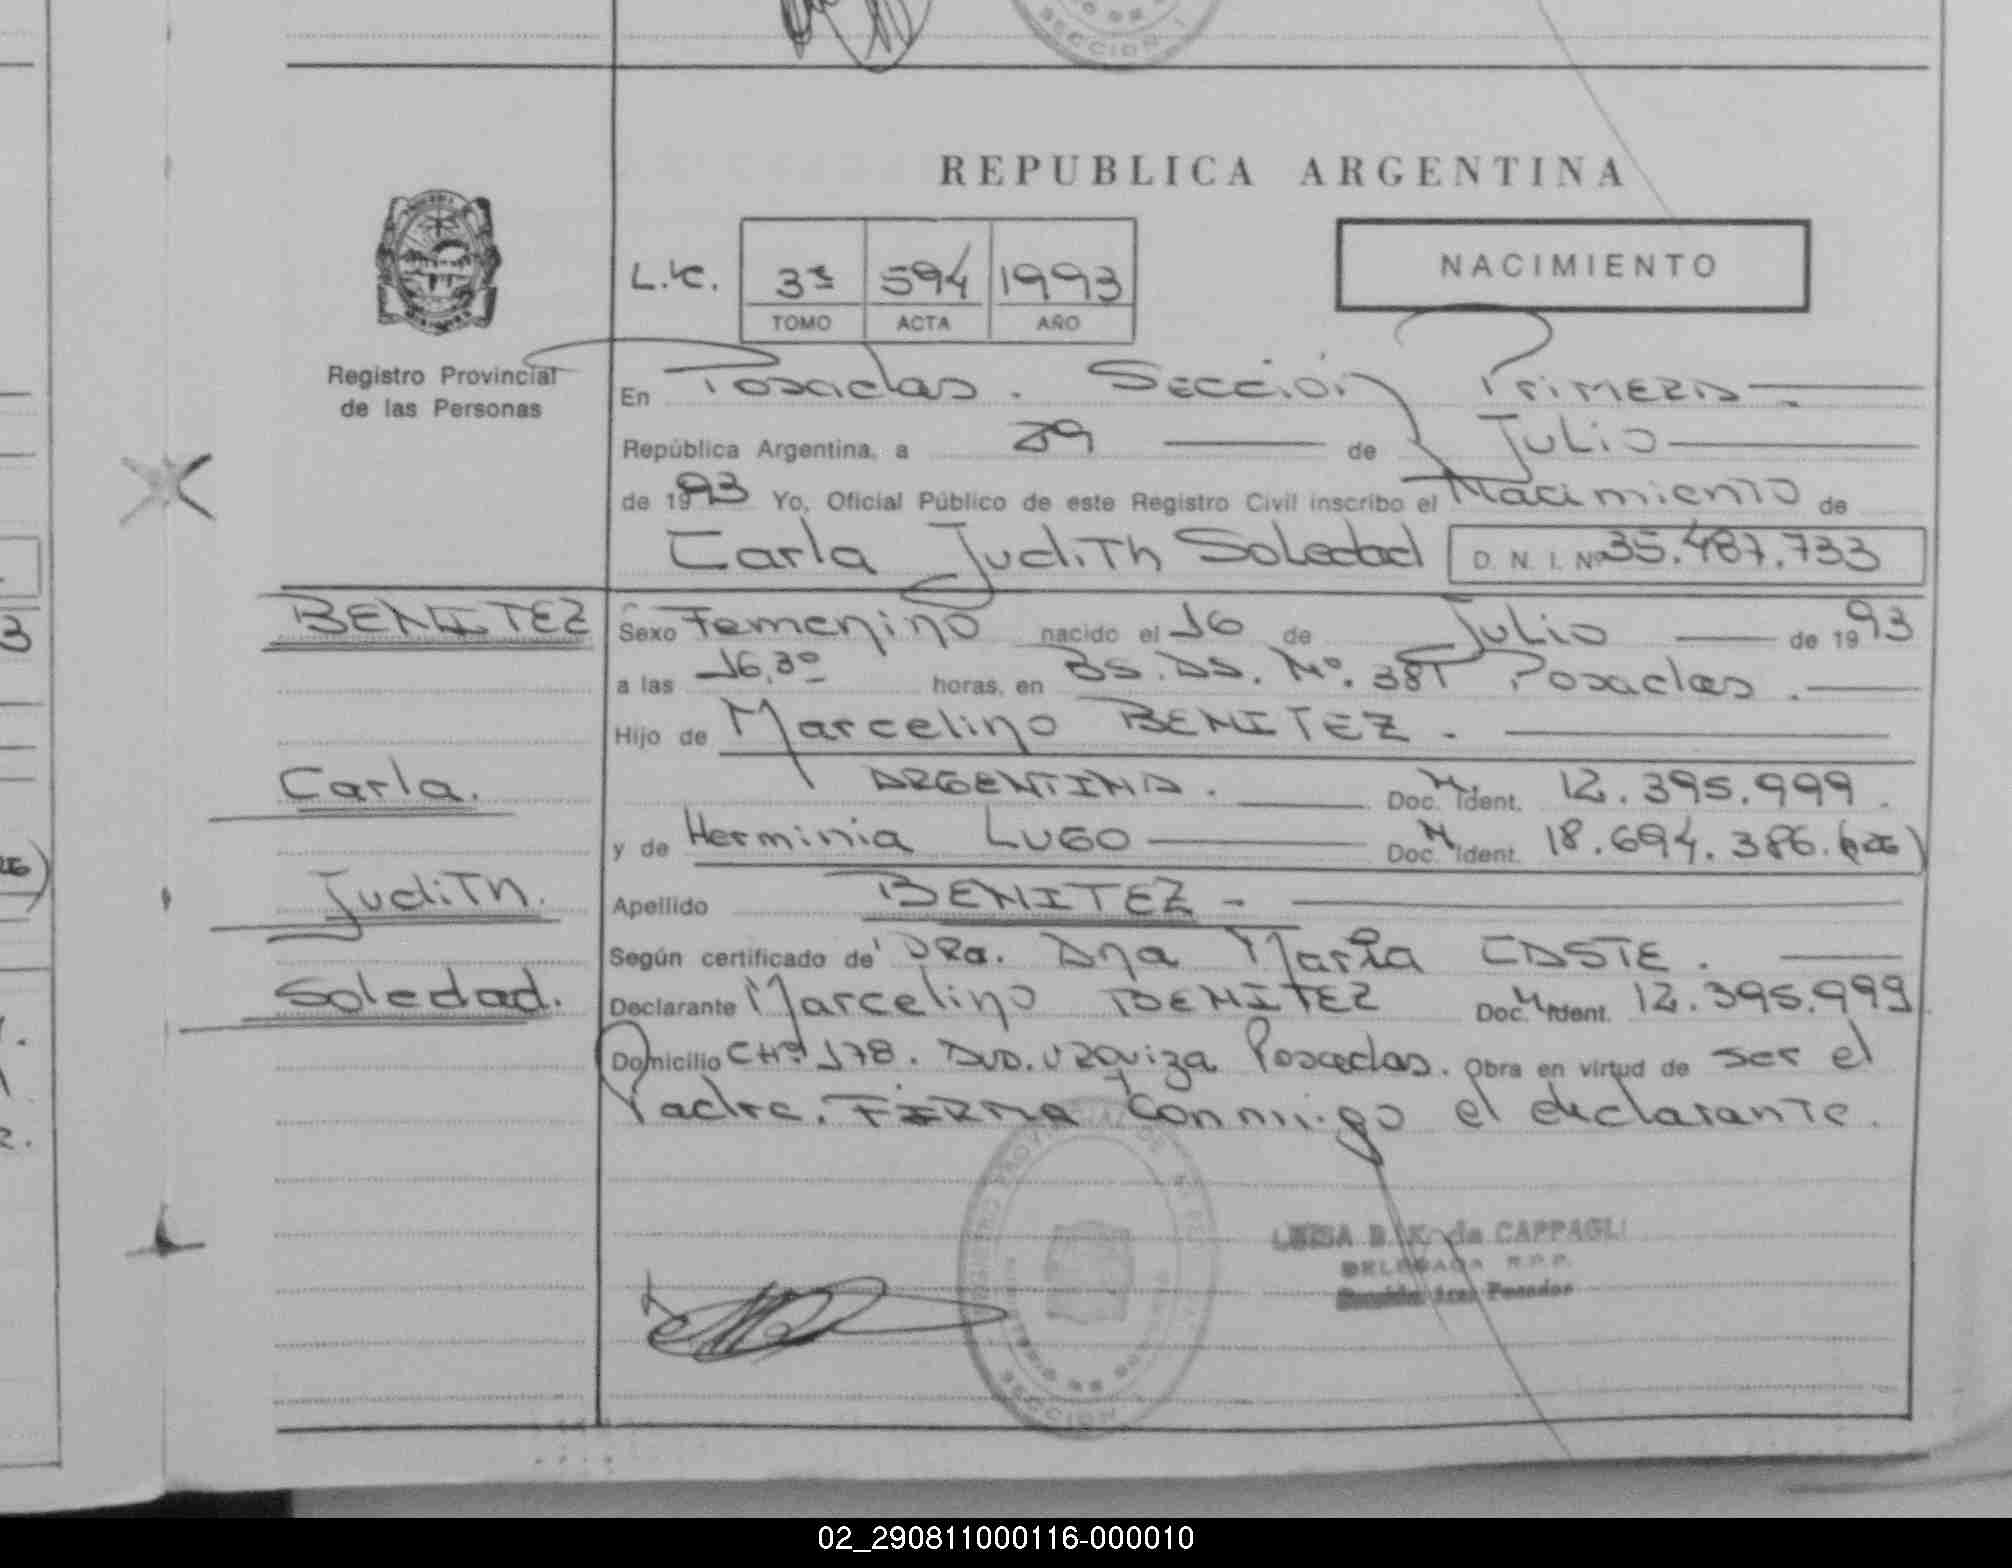 SECCION 1
REPUBLICA ARGENTINA
NACIMIENTO
L.C. 3º 594 1993
TOMO ACTA AÑO
Registro Provincial
de las Personas
En Posadas. Sección Primera
República Argentina, a 29 de Julio
de 1993 Yo, Oficial Público de este Registro Civil inscribo el Nacimiento de
Carla Judith Soledad D. N. I. Nº 35.487.733
BENITEZ
Sexo Femenino nacido el 16 de Julio de 1993
a las 16,30 horas, en BS. AS. Nº. 381 Posadas.
Hijo de Marcelino BENITEZ.
Carla.
ARGENTINA. Doc. N Ident. 12.395.999.
y de Herminia LUGO Doc. N Ident. 18.694.386.
Judith.
Apellido BENITEZ
Según certificado de DRa. Ana María CASTE.
Soledad.
Declarante Marcelino BENITEZ Doc. N Ident. 12.395.999
Domicilio CHª 178. AVD. URQuiza Posadas. Obra en virtud de ser el
Padre. FIRMA Conmigo el declarante.
LUISA B. K. de CAPPAGLI
DELEGADA R.P.P.
Sección 1ra. Posadas
REGISTRO PROVINCIAL DE
SECCION 1
02_290811000116-000010